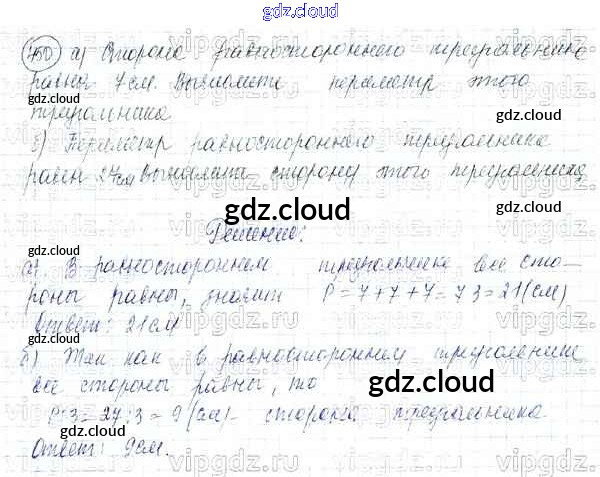 gdz.cloud
450 а) Сторона равностороннего треугольника
равна 7 см. Вычислите периметр этого
треугольника
gdz.cloud
б) Периметр равностороннего треугольника
равен 27 см Вычислите сторону этого треугольника
gdz.cloud
Решение:
а) В равностороннем треугольнике все сто-
роны равны, значит P = 7 + 7 + 7 = 7 3 = 21 (см)
Ответ: 21 см
б) Так как в равностороннем треугольнике
все стороны равны, то
gdz.cloud
P:3 = 27:3 = 9 (см) - сторона треугольника
Ответ: 9 см.